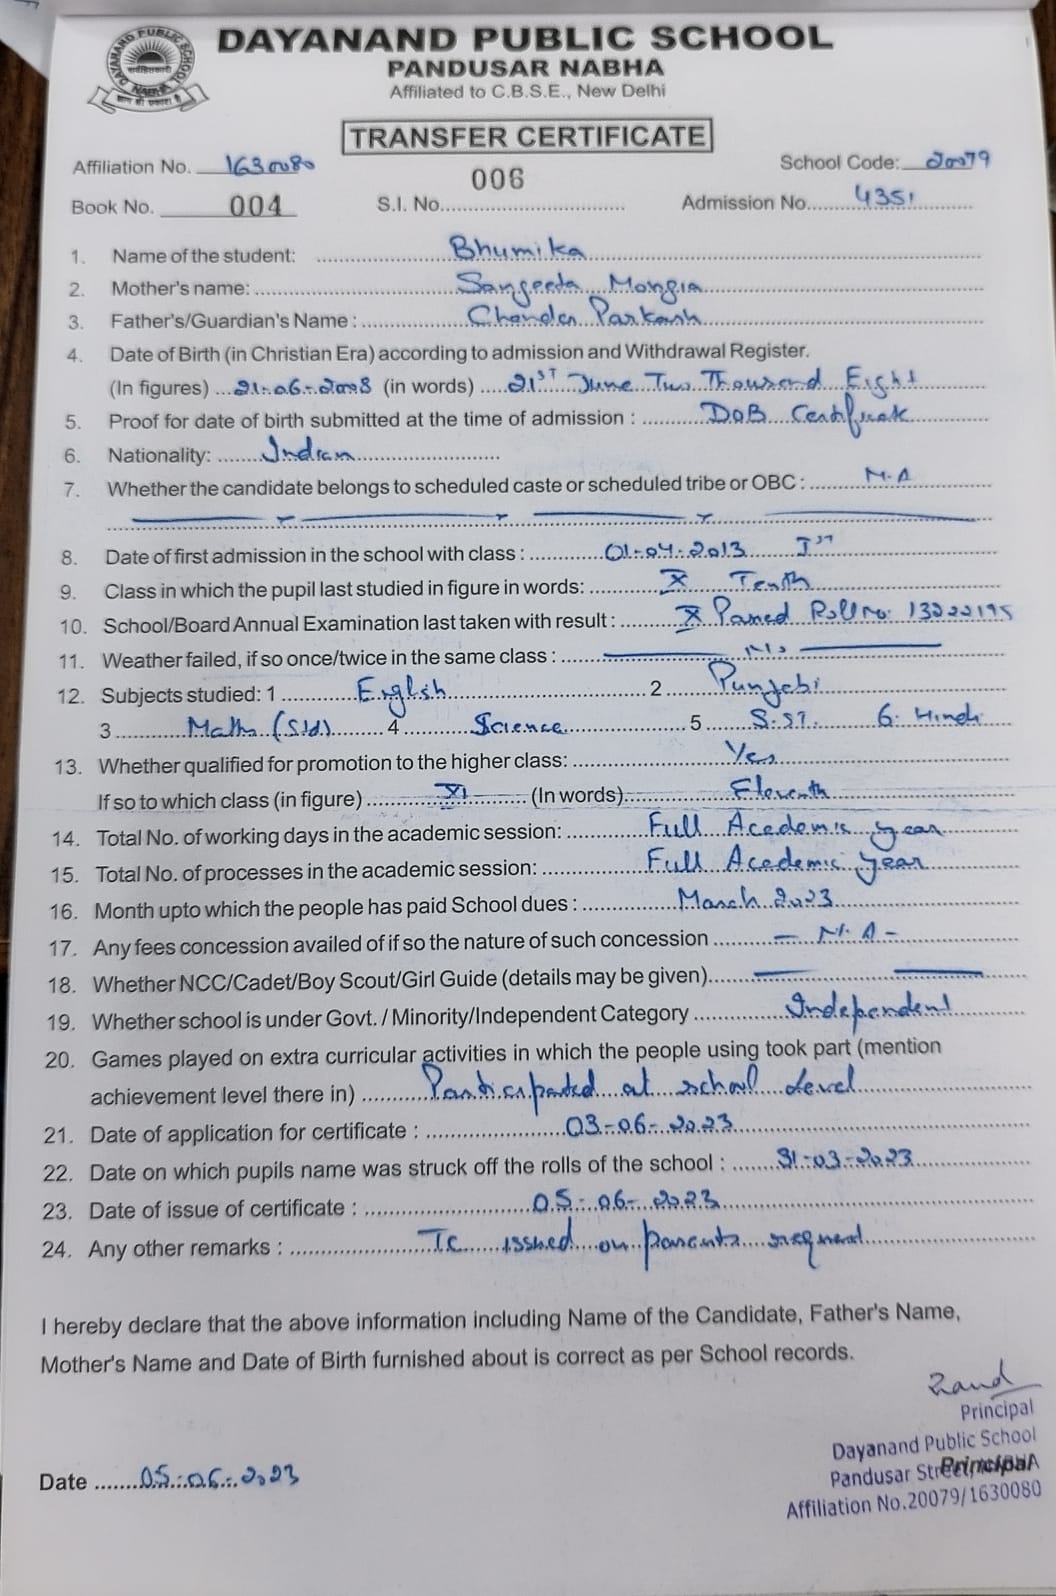 DAYANAND PUBLIC SCHOOL NABHA
DAYANAND PUBLIC SCHOOL
PANDUSAR NABHA
Affiliated to C.B.S.E., New Delhi
TRANSFER CERTIFICATE
Affiliation No. 1630080 School Code: 20079
006
Book No. 004 S.I. No. Admission No. 4351
1. Name of the student: Bhumika
2. Mother's name: Sangeeta Mongia
3. Father's/Guardian's Name : Chander Parkash
4. Date of Birth (in Christian Era) according to admission and Withdrawal Register.
(In figures) 21-06-2008 (in words) 21ST June Two Thousand Eight
5. Proof for date of birth submitted at the time of admission : DOB Certificate
6. Nationality: Indian
7. Whether the candidate belongs to scheduled caste or scheduled tribe or OBC : N.A
8. Date of first admission in the school with class : 01-04-2013 Ist
9. Class in which the pupil last studied in figure in words: X Tenth
10. School/Board Annual Examination last taken with result : X Passed Roll no: 13222195
11. Weather failed, if so once/twice in the same class :
12. Subjects studied: 1 English 2 Punjabi
3 Maths (Std) 4 Science 5 S.ST. 6. Hindi
13. Whether qualified for promotion to the higher class: Yes
If so to which class (in figure) XI (In words) Eleventh
14. Total No. of working days in the academic session: Full Academic year
15. Total No. of processes in the academic session: Full Academic year
16. Month upto which the people has paid School dues : March 2023
17. Any fees concession availed of if so the nature of such concession - N.A -
18. Whether NCC/Cadet/Boy Scout/Girl Guide (details may be given)
19. Whether school is under Govt. / Minority/Independent Category Independent
20. Games played on extra curricular activities in which the people using took part (mention
achievement level there in) Participated at school level
21. Date of application for certificate : 03-06-2023
22. Date on which pupils name was struck off the rolls of the school : 31-03-2023
23. Date of issue of certificate : 05-06-2023
24. Any other remarks : TC issued on parents request
I hereby declare that the above information including Name of the Candidate, Father's Name,
Mother's Name and Date of Birth furnished about is correct as per School records.
Principal
Dayanand Public School
Pandusar Street, NABHA
Principal
Affiliation No.20079/1630080
Date 05-06-2023